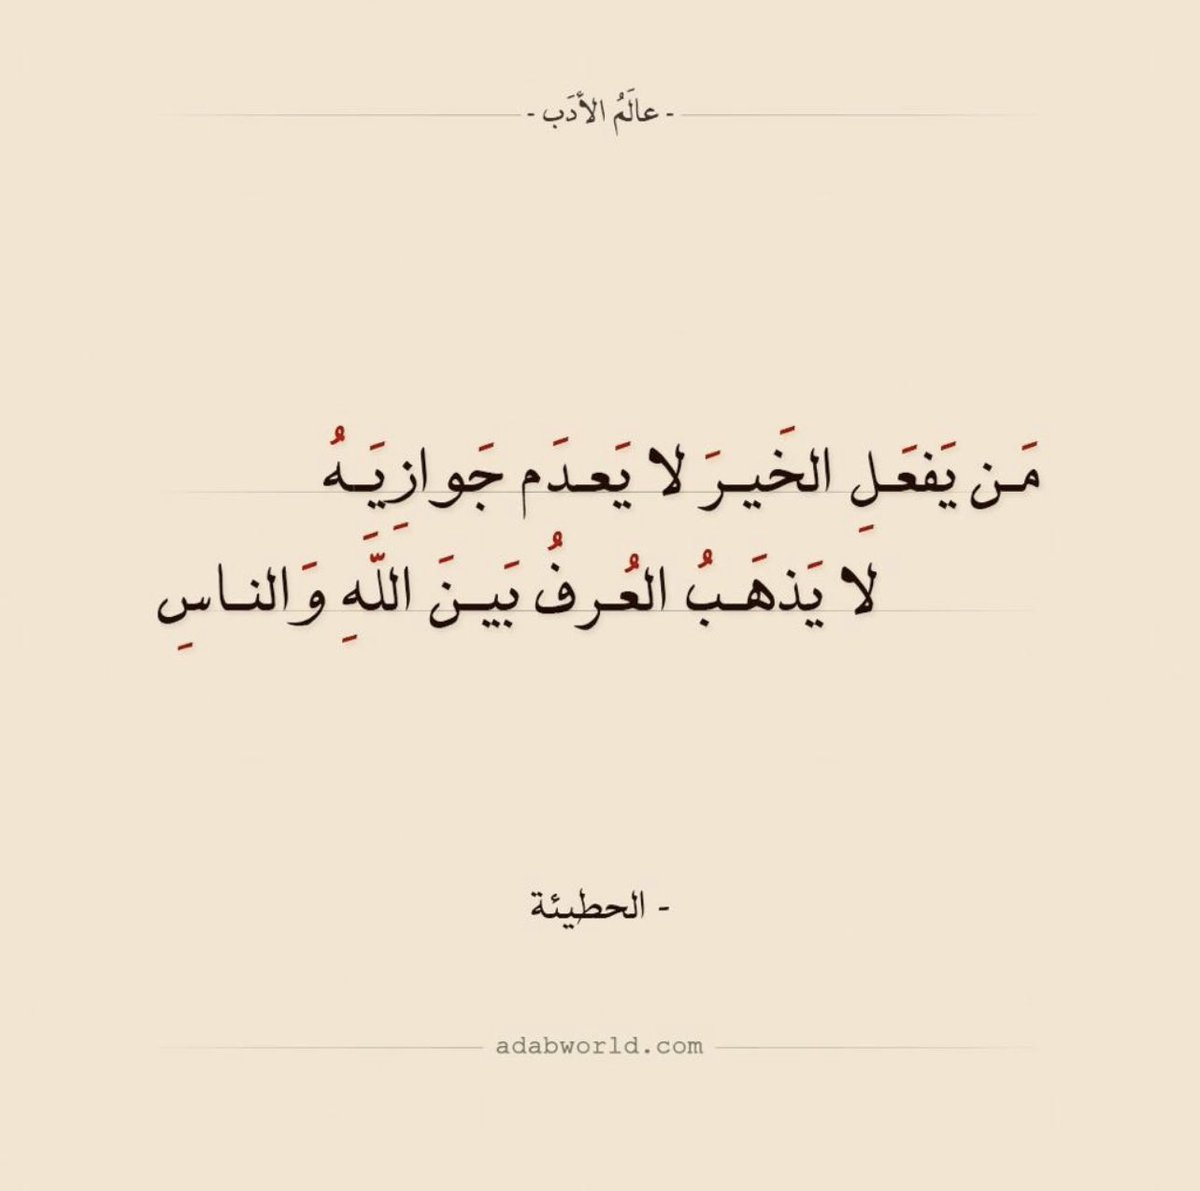 - عالَمُ الأَدَب -
مَن يَفعَلِ الخَيرَ لا يَعدَم جَوازِيَهُ
لا يَذهَبُ العُرفُ بَينَ اللَّهِ وَالناسِ
- الحطيئة
adabworld.com